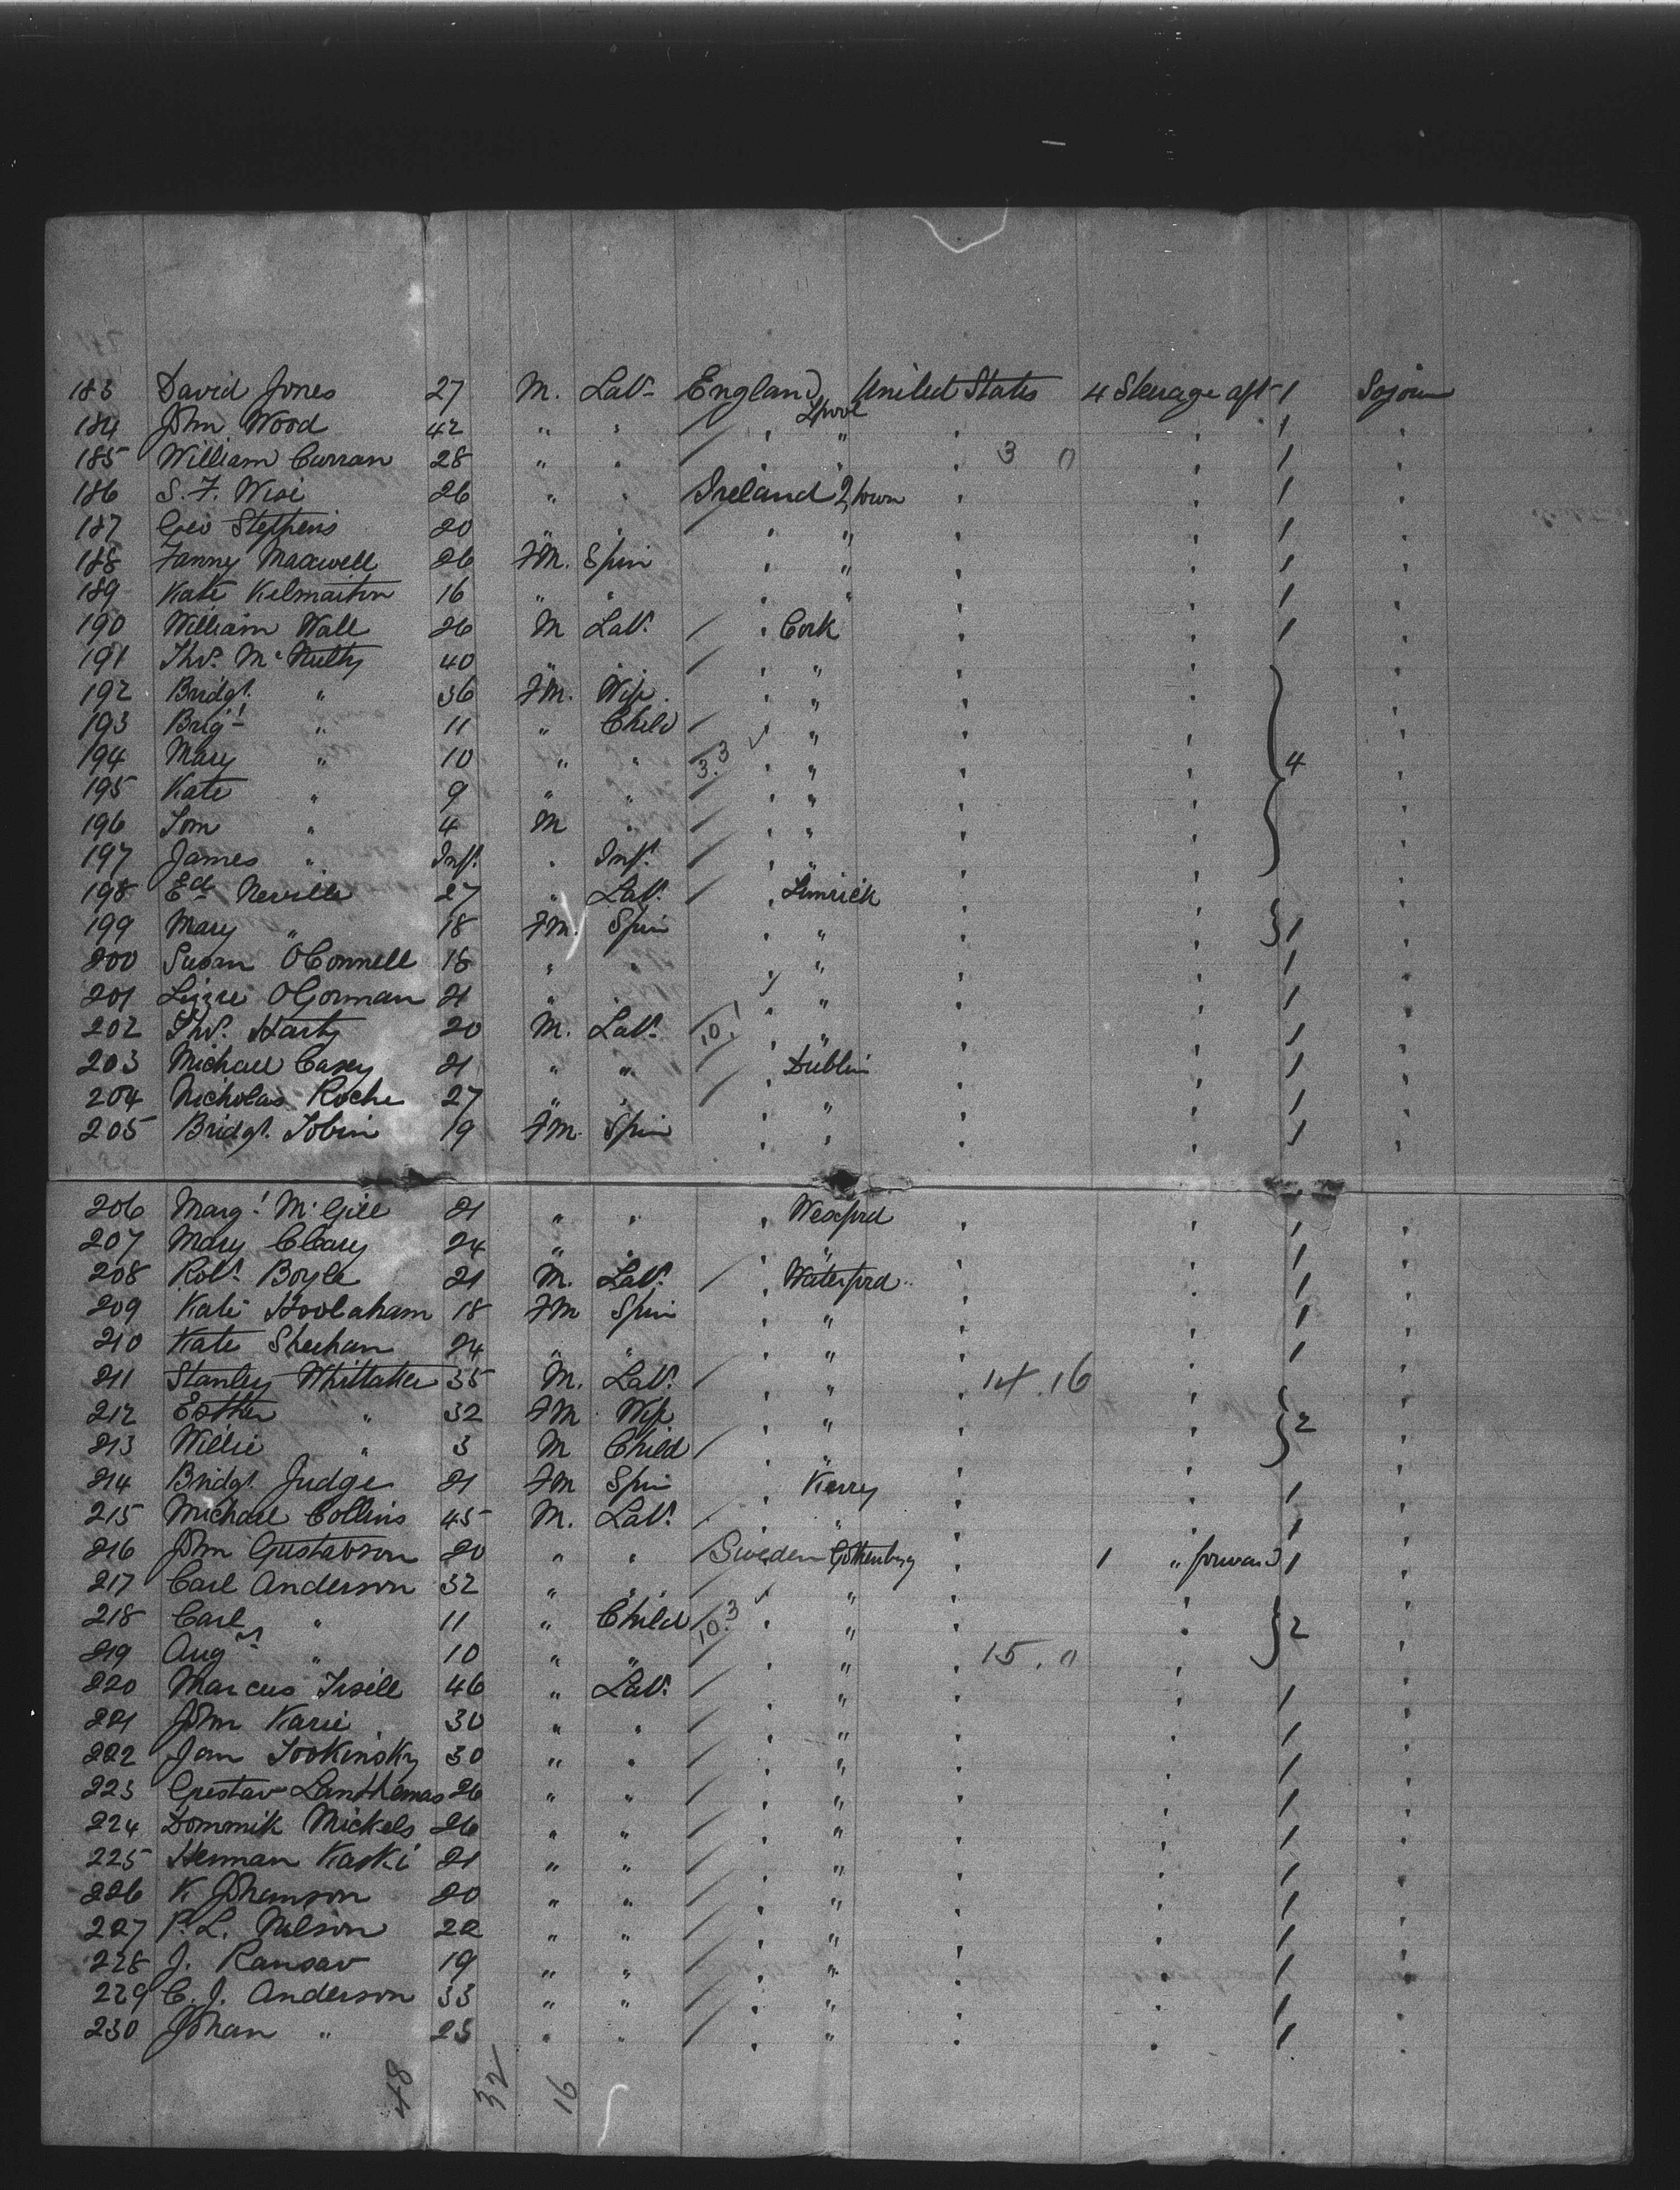 183 David Jones 27 M. Labr England L'pool United States 4 Steerage aft 1 Sojourn
184 John Wood 42 " " / " " " " 1 "
185 William Curran 28 " " / " " " 3 0 " 1 "
186 S. F. 26 " " Ireland Q'town " " 1 "
187 Geo Stephens 20 " " " " " " 1 "
188 Fanny Maxwell 26 FM. Spin " " " " 1 "
189 Kate Kilmartin 16 " " " " " " 1 "
190 William Wall 26 M Labr / " Cork " " 1 "
191 Thos. McNulty 40 " " / " " " " "
192 Bridgt. " 36 FM. Wife " " " " "
193 Brigt " 11 " Child / " " " " "
194 Mary " 10 " " 3.3 " " " " 4 "
195 Kate " 9 " " / " " " " "
196 Tom " 4 M " / " " " " "
197 James " Inft. " Inft. / " " " " "
198 Ed Neville 27 " Labr. / " Limrick " " "
199 Mary " 18 FM. Spin " " " " 1 "
200 Susan OConnell 18 " " " " " " 1 "
201 Lizzie OGorman 21 " " " " " " 1 "
202 Thos. Harty 20 M. Labr. 10.1 " " " " 1 "
203 Michael Casey 21 " " / " Dublin " " 1 "
204 Nicholas Roche 27 " " / " " " " 1 "
205 Bridgt. Tobin 19 FM. Spin " " " " 1 "
206 Margt. McGill 21 " " " Wexford " " 1 "
207 Mary Cleary 24 " " " " " " 1 "
208 Robt. Boyle 21 M. Labr. / " Waterford " " 1 "
209 Kate Hoolaham 18 FM Spin " " " " 1 "
210 Kate Sheehan 24 " " " " " " 1 "
211 Stanley Whittaker 35 M. Labr. / " " " 14.16 " "
212 Esther " 32 FM Wife " " " " 2 "
213 Willie " 3 M Child / " " " " "
214 Bridgt. Judge 21 FM Spin " Kerry " " 1 "
215 Michael Collins 45 M. Labr. / " " " " 1 "
216 John Gustavson 20 " " / Sweden Gothenburg " 1 " forward 1 "
217 Carl Anderson 32 " " / " " " " "
218 Carl " 11 " Child 10.3 " " " " 2 "
219 Augt " 10 " " / " " " 15.0 " "
220 Marcus 46 " Labr. / " " " " 1 "
221 John Karie 30 " " / " " " " 1 "
222 Jan 30 " " / " " " " 1 "
223 Gustav 26 " " / " " " " 1 "
224 Dominik Mickels 26 " " / " " " " 1 "
225 Herman Kaski 21 " " / " " " " 1 "
226 K Johanson 20 " " / " " " " 1 "
227 P. L. Nilson 22 " " / " " " " 1 "
228 J. Ransav 19 " " / " " " " 1 "
229 C. J. Anderson 33 " " / " " " " 1 "
230 Johan " 23 " " / " " " " 1 "
48 32 16